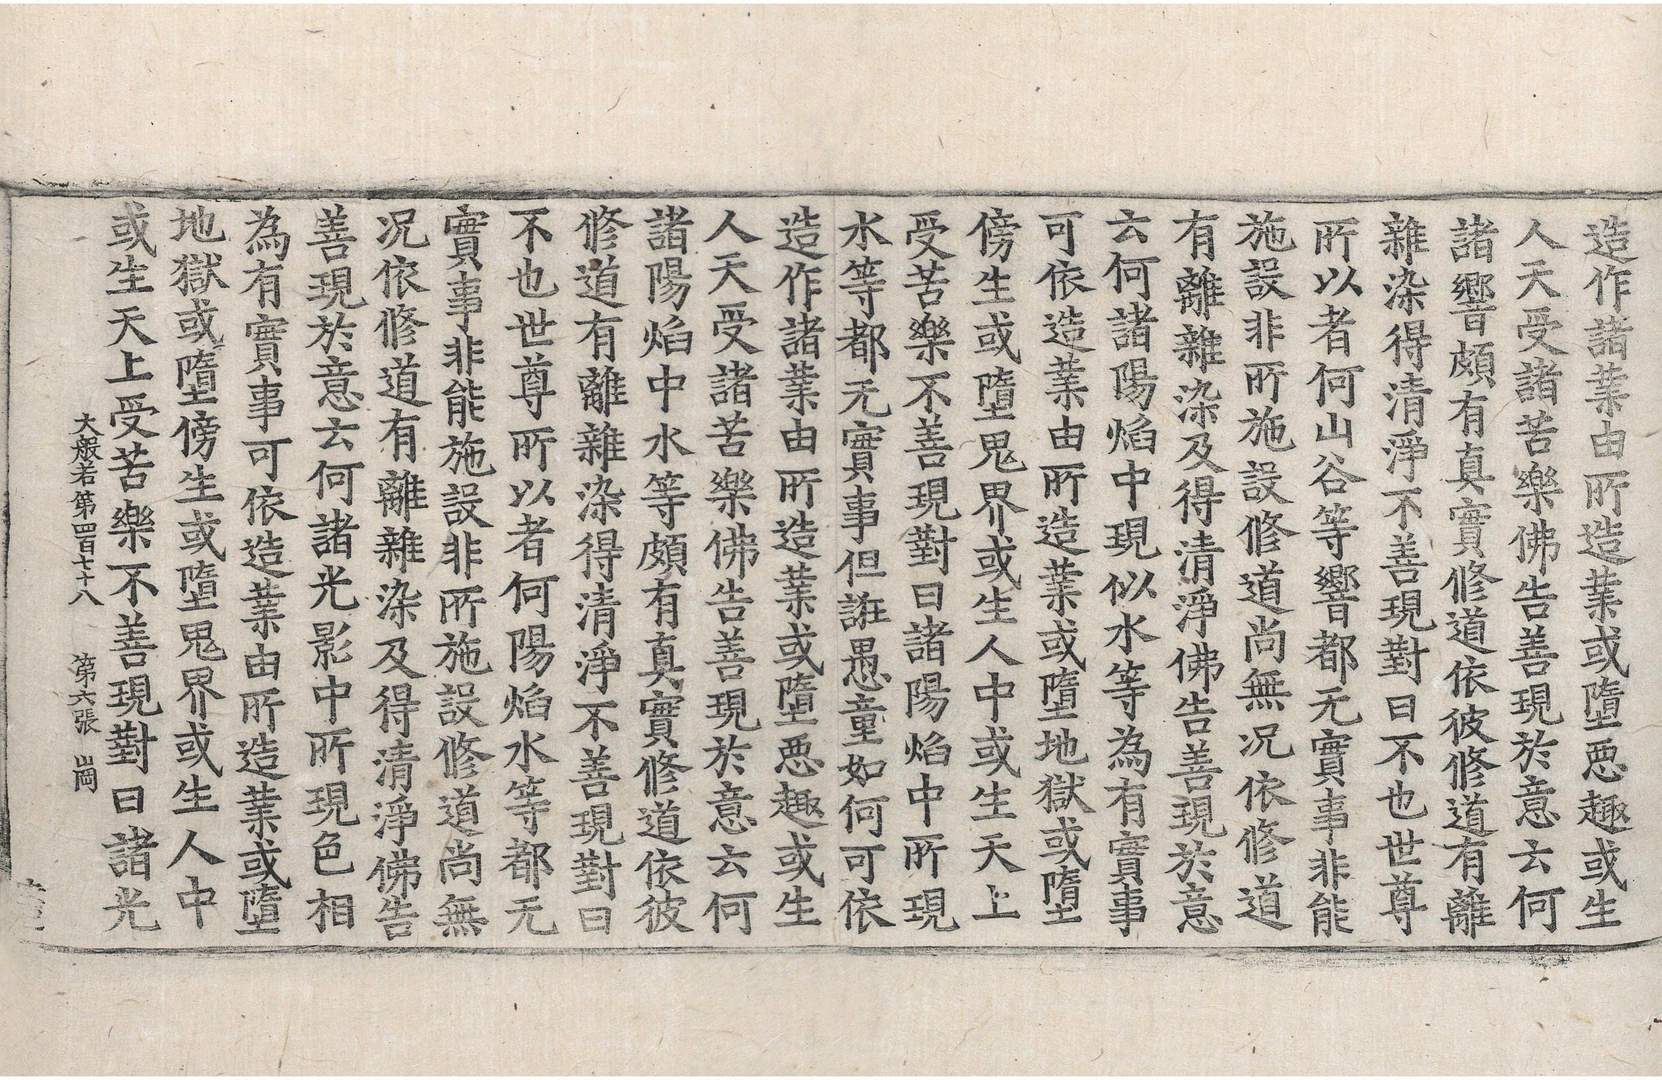 造作諸業由所造業或墮惡趣或生
人天受諸苦樂佛告善現於意云何
諸響頗有真實修道依彼修道有離
雜染得清淨不善現對曰不也世尊
所以者何山谷等響都无實事非能
施設非所施設修道尚無況依修道
有離雜染及得清淨佛告善現於意
云何諸陽焰中現似水等為有實事
可依造業由所造業或墮地獄或墮
傍生或墮鬼界或生人中或生天上
受苦樂不善現對曰諸陽焰中所現
水等都无實事但誑愚童如何可依
造作諸業由所造業或墮惡趣或生
人天受諸苦樂佛告善現於意云何
諸陽焰中水等頗有真實修道依彼
修道有離雜染得清淨不善現對曰
不也世尊所以者何陽焰水等都无
實事非能施設非所施設修道尚無
況依修道有離雜染及得清淨佛告
善現於意云何諸光影中所現色相
為有實事可依造業由所造業或墮
地獄或墮傍生或墮鬼界或生人中
或生天上受苦樂不善現對曰諸光
大般若第四百七十八 第六張 崗